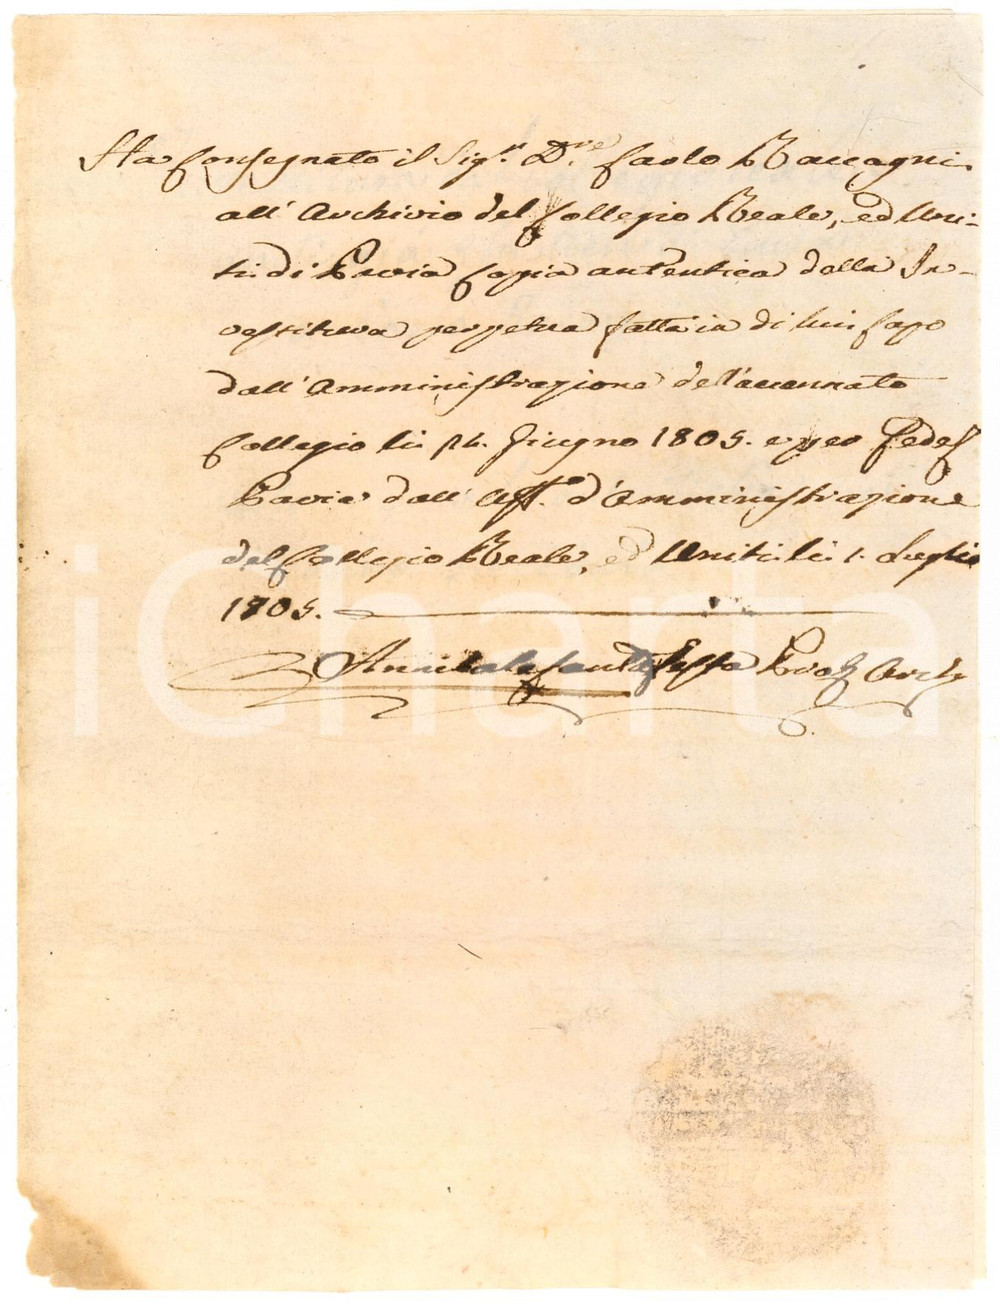 Ha consegnato il Sig.r D.re Paolo Baccagni
all'Archivio del Collegio Reale, ed Uni-
ti di Pavia copia autentica della In-
vestitura perpetua fatta in di lui capo
dall'Amministrazione dell'accennato
Collegio li 14. Giugno 1805. e per fede
Pavia dall'Uff.o d'Amministrazione
del Collegio Reale, ed Uniti li 1. Luglio
1805.
Annibale Arch
iCharta